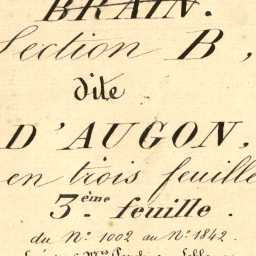 BRAIN.
Section B,
dite
D'AUGON,
en trois feuille
3ème feuille.
du N° 1002 au N° 1842.